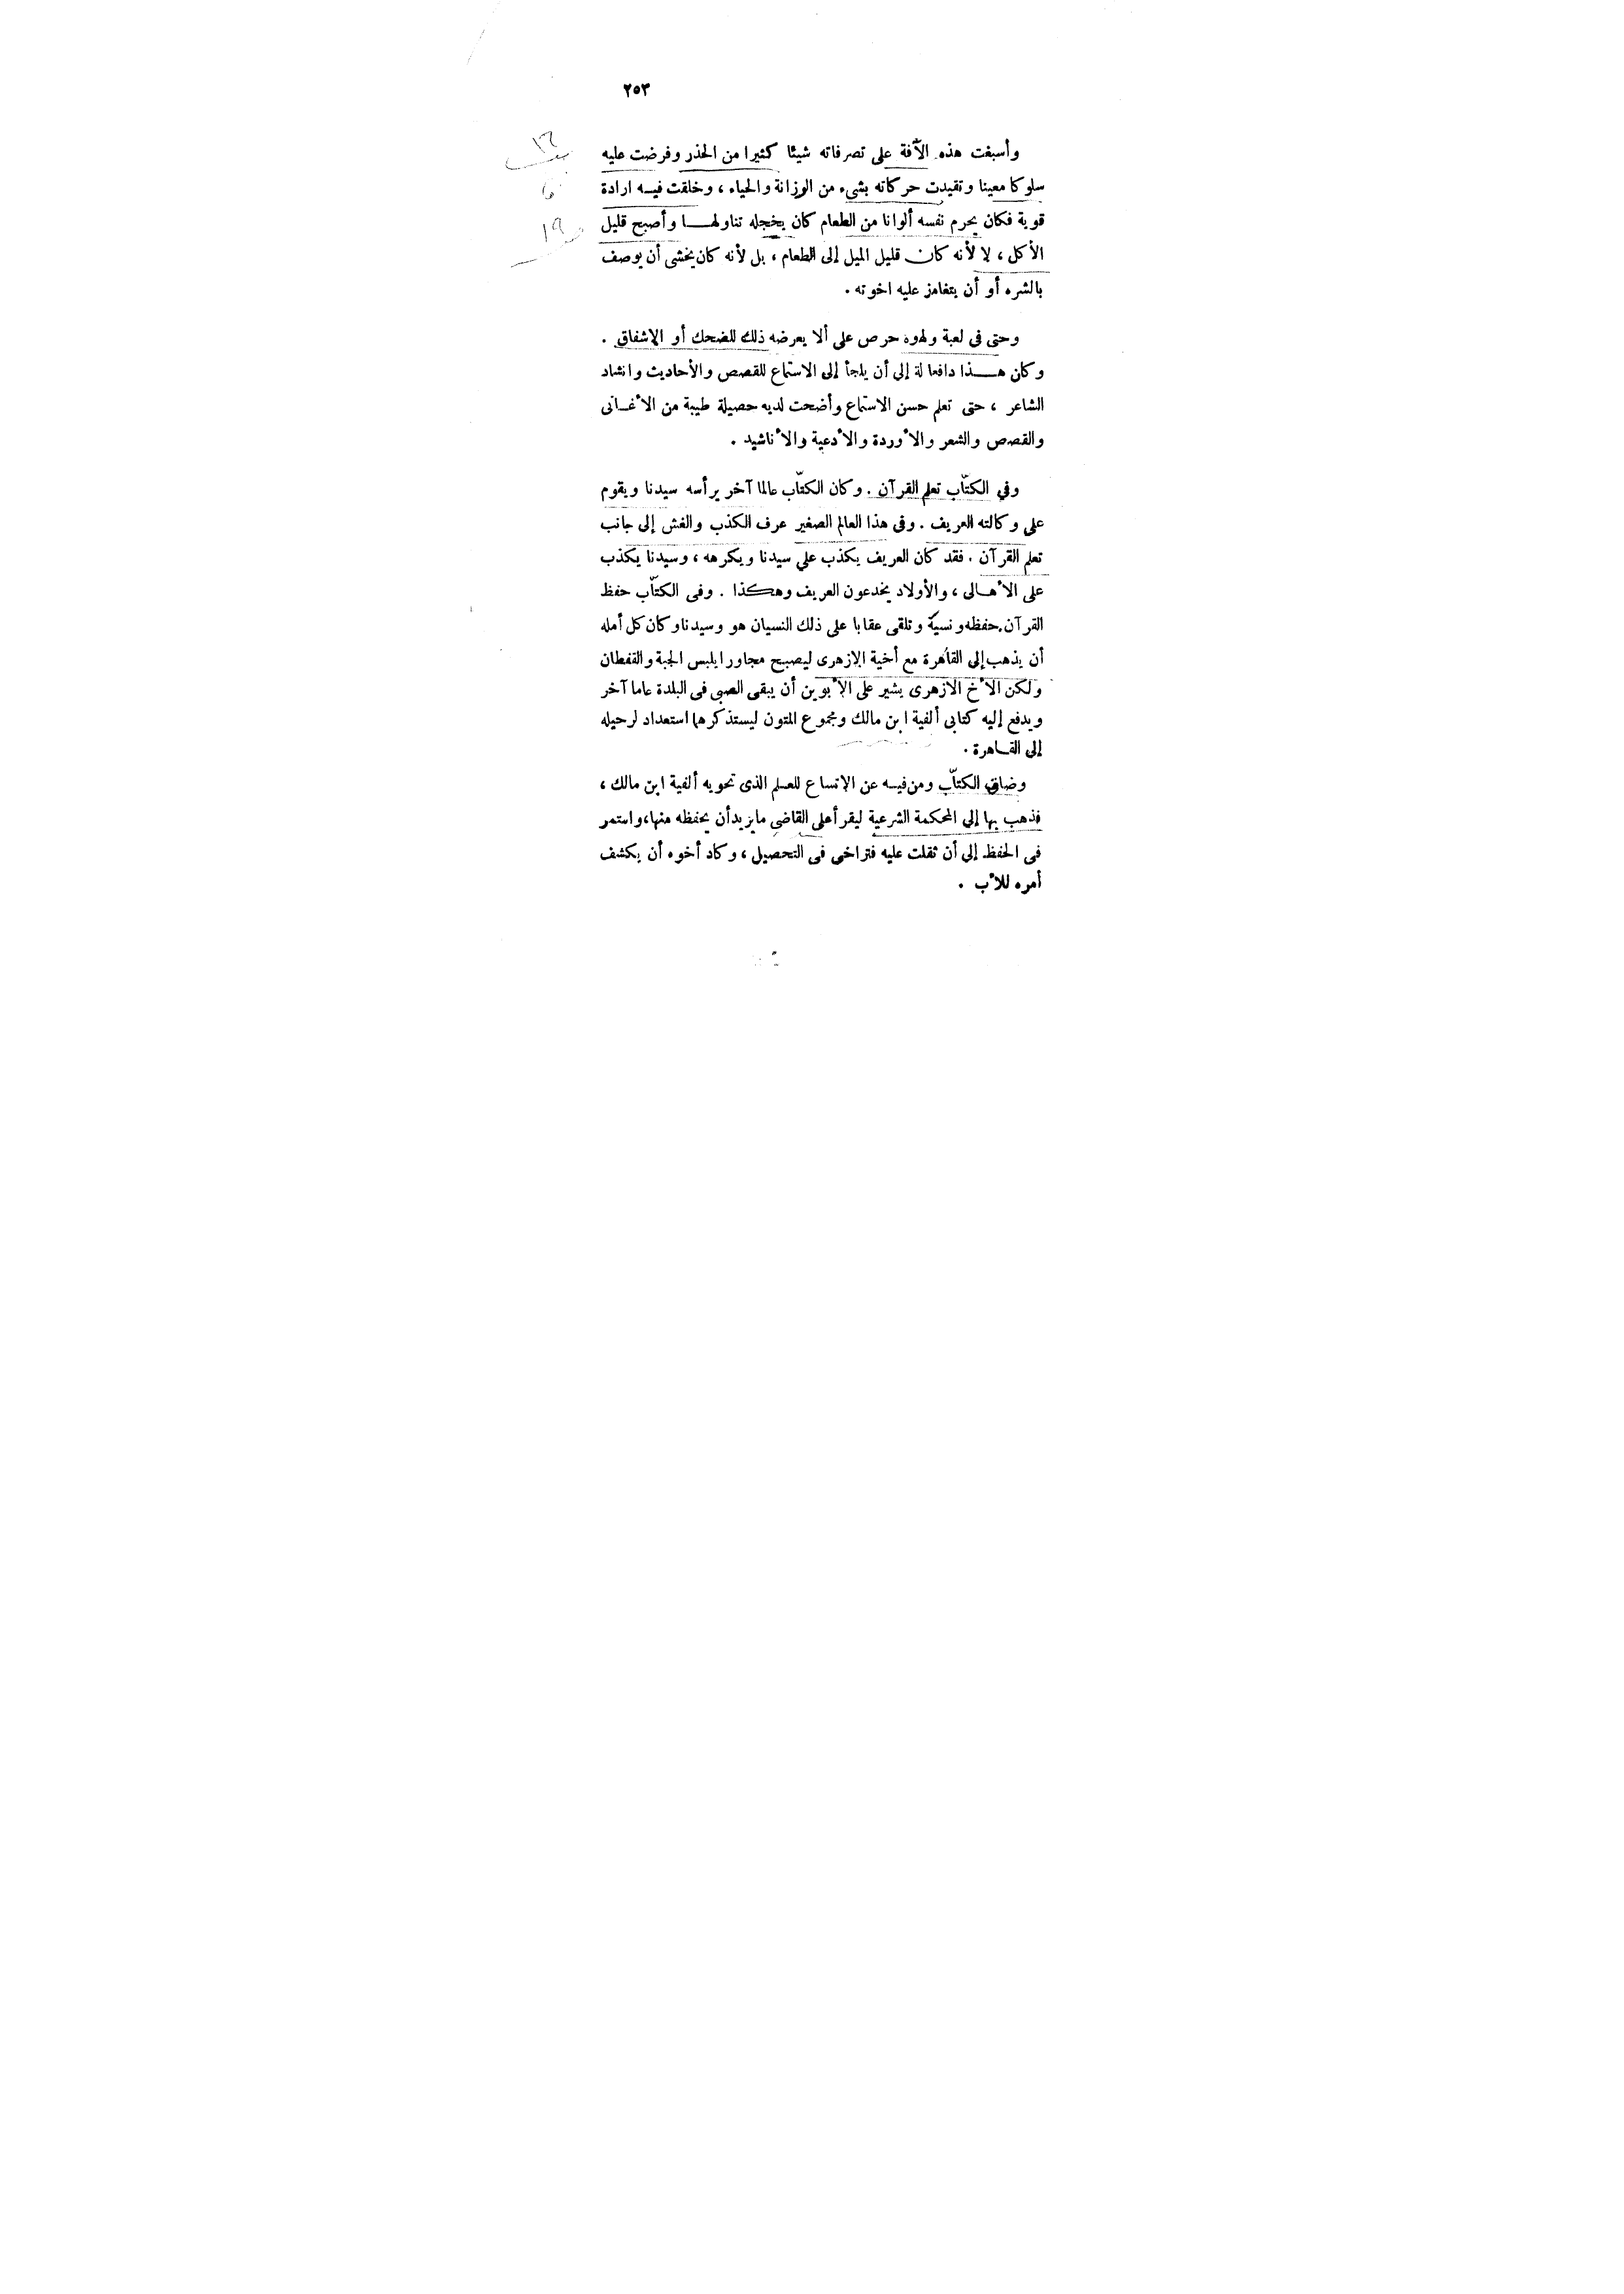 ٢٥٣
وأسبغت هذه الآفة على تصرفاته شيئا كثيرا من الحذر وفرضت عليه
سلوكا معينا وتقيدت حركاته بشىء من الرزانة والحياء ، وخلقت فيه ارادة
قوية فكان يحرم نفسه ألوانا من الطعام كان يخجله تناولها وأصبح قليل
الأكل ، لا لأنه كان قليل الميل إلى الطعام ، بل لأنه كان يخشى أن يوصف
بالشره أو أن يتغامز عليه اخوته .
وحتى فى لعبة ولهوه حرص على ألا يعرضه ذلك للضحك أو الإشفاق .
وكان هذا دافعا لة إلى أن يلجأ إلى الاستماع للقصص والأحاديث وانشاد
الشاعر ، حتى تعلم حسن الاستماع وأضحت لديه حصيلة طيبة من الأغانى
والقصص والشعر والأوردة والأدعية والأناشيد .
وفي الكتّاب تعلم القرآن . وكان الكتّاب عالما آخر يرأسه سيدنا ويقوم
على وكالته العريف . وفى هذا العالم الصغير عرف الكذب والغش إلى جانب
تعلم القرآن . فقد كان العريف يكذب على سيدنا ويكرهه ، وسيدنا يكذب
على الأهالى ، والأولاد يخدعون العريف وهكذا . وفى الكتّاب حفظ
القرآن . حفظه ونسية وتلقى عقابا على ذلك النسيان هو وسيدنا وكان كل أمله
أن يذهب إلى القاهرة مع أخية الازهرى ليصبح مجاورا يلبس الجبة والقفطان
ولكن الأخ الازهرى يشير على الأبوين أن يبقى الصبى فى البلدة عاما آخر
ويدفع إليه كتابى ألفية ابن مالك ومجموع المتون ليستذكرهما استعداد لرحيله
إلى القاهرة .
وضاق الكتّاب ومن فيه عن الإتساع للعلم الذى تحويه ألفية ابن مالك ،
فذهب بها إلى المحكمة الشرعية ليقرأ على القاضى ما يريد أن يحفظه منها، واستمر
فى الحفظ إلى أن ثقلت عليه فتراخى فى التحصيل ، وكاد أخوه أن يكشف
أمره للأب .